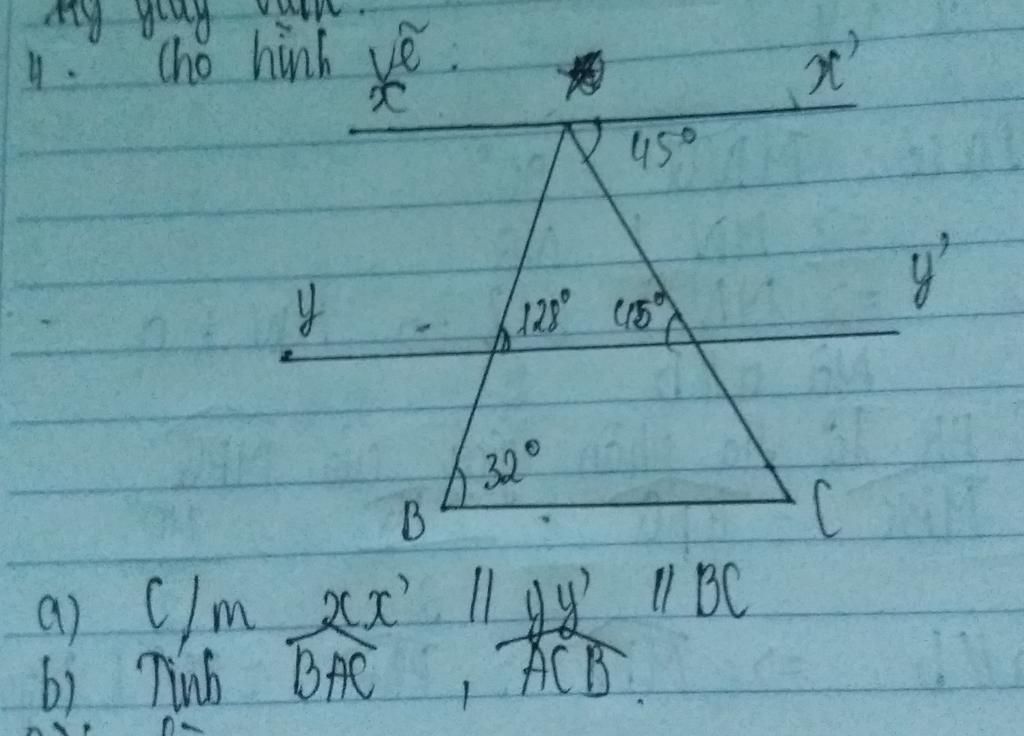 4. Cho hình vẽ.
x x'
45°
y 128° 45° y'
32°
B C
a) C/m xx' // yy' // BC
b) Tính BAC, ACB.